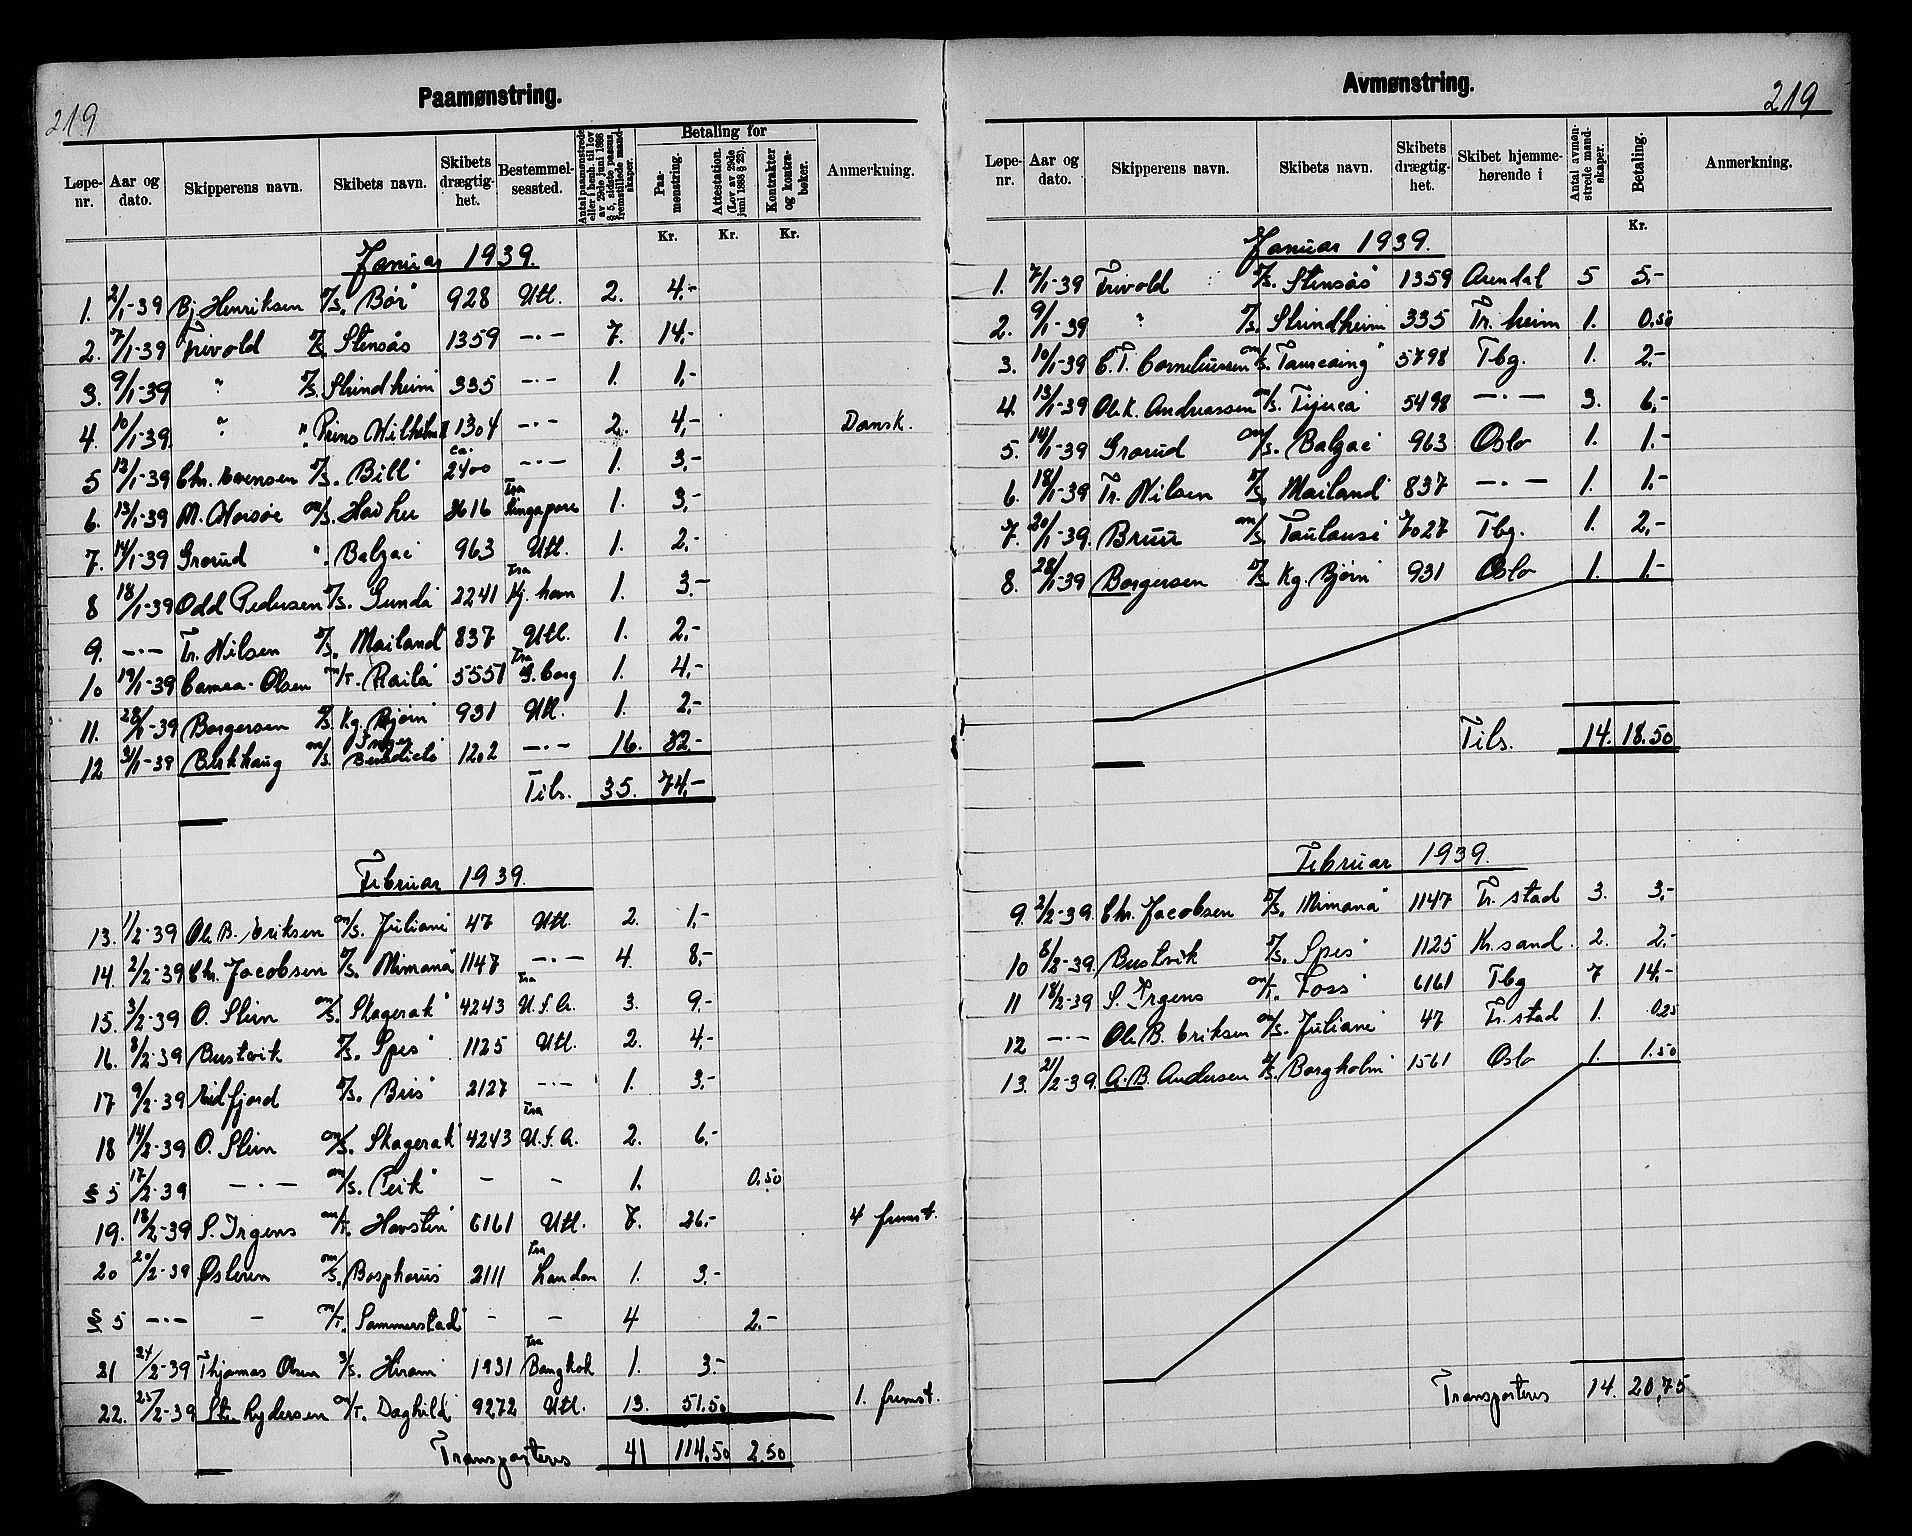 219
Paamønstring.
Løpe-nr. Aar og dato. Skipperens navn. Skibets navn. Skibets drægtig-het. Bestemmel-sessted. Antal paamønstrede eller i henh. til lov av 29de juni 1888 § 5, sidste passus, fremstillede mand-skaper. Betaling for Paa-mønstring. Attestation. (Lov av 29de juni 1888 § 23). Kontrakter og kontra-bøker. Anmerkning.
Kr. Kr. Kr.
Januar 1939.
1. 2/1-39 Bj. Henriksen D/S. "Bør" 928 Utl. 2. 4,-
2. 7/1-39 Trivold D/S. Stensås 1359 -·- 7. 14,-
3. 9/1-39 " D/S. Strindheim 335 -·- 1. 1,-
4. 10/1-39 " " Prins Wilhelm II 1304 -·- 2. 4,- Dansk.
5 12/1-39 Chr. Evensen D/S. "Bill" ca. 2400 -·- 1. 3,-
6. 13/1-39 M. m/S. 3616 Fra Singapore 1. 3,-
7. 14/1-39 Grorud " "Balzac" 963 Utl. 1. 2,-
8 18/1-39 Odd Pedersen D/S. "Gunda" 2241 Fra Kj. havn 1. 3.-
9. -·- Fr. Nilsen D/S. "Mailand" 837 Utl. 1. 2,-
10 19/1-39 Olsen m/T. "Raila" 5557 Fra G.borg 1. 4,-
11. 28/1-39 Borgersen D/S. Kg. Bjørn 931 Utl. 1. 2,-
12 31/1-39 Birkhaug m/S. Benedicte 1202 -·- 16. 32.-
Tils. 35. 74,-
Februar 1939.
13. 1/2-39 Ole B. Eriksen m/S. "Juliane" 47 Utl. 2. 1,-
14. 2/2-39 Chr. Jacobsen D/S. "Mimona" 1147 -·- 4. 8,-
15. 3/2-39 O. Stein m/S. "Skagerak" 4243 Fra U.S.A. 3. 9,-
16. 8/2-39 Bustvik D/S. "Spes" 1125 Utl. 2. 4,-
17 9/2-39 Eidfjord D/S. "Bris" 2127 -·- 1. 3,-
18 14/2-39 O. Stein m/S. "Skagerak" 4243 Fra U.S.A. 2. 6,-
§ 5 17/2-39 -·- m/S. "Peik" - - 1. 0.50
19. 18/2-39 S. Irgens m/T. "Havsten" 6161 Utl. 7. 26,- 4 fremst.
20 20/2-39 m/S. Bosphorus 2111 Fra London 1. 3,-
§ 5 -·- - m/T. "Sommerstad" - - 4 2.-
21 24/2-39 Thomas Olsen D/S. "Hiram" 1931 Fra Bangkok 1. 3.-
22. 25/2-39 m/T. Daghild 9272 Utl. 13. 51.50 1. fremst.
Transporteres 41 114,50 2.50
Avmønstring.
219
Løpe-nr. Aar og dato. Skipperens navn. Skibets navn. Skibets drægtig-het. Skibet hjemme-hørende i Antal avmøn-strede mand-skaper. Betaling. Anmerkning.
Kr.
Januar 1939.
1. 7/1-39 Trivold D/S. Stensås 1359 Arendal 5 5,-
2. 9/1-39 " D/S. Strindheim 335 Tr. heim 1. 0.50
3. 10/1-39 C. T. Corneliussen m/S. "Tancaing" 5798 Tbg. 1. 2.-
4. 13/1-39 Ole K. Andreassen m/S. "Tijuca" 5498 -·- 3. 6,-
5. 14/1-39 Grorud m/S. "Balzac" 963 Oslo 1. 1.-
6. 18/1-39 Fr. Nilsen D/S. "Mailand" 837 -·- 1. 1.-
7. 20/1-39. Bruu m/S. 7027 Tbg. 1. 2,-
8. 28/1-39 Borgersen D/S Kg. Bjørn 931 Oslo 1. 1.-
Tils. 14. 18.50
Februar 1939.
9. 2/2-39. Chr. Jacobsen D/S. "Mimona" 1147 Fr. stad 3. 3,-
10 8/2-39. Bustvik D/S. "Spes" 1125 Kr. sand. 2. 2,-
11 18/2-39 S. Irgens m/T. "Foss" 6161 Tbg 7 14.-
12 -·- Ole B. Eriksen m/S. "Juliane" 47 Fr. stad 1. 0.25
13. 21/2-39. A. B. Andersen D/S. "Borgholm" 1561 Oslo 1. 1.50
Transporteres 14. 20,75